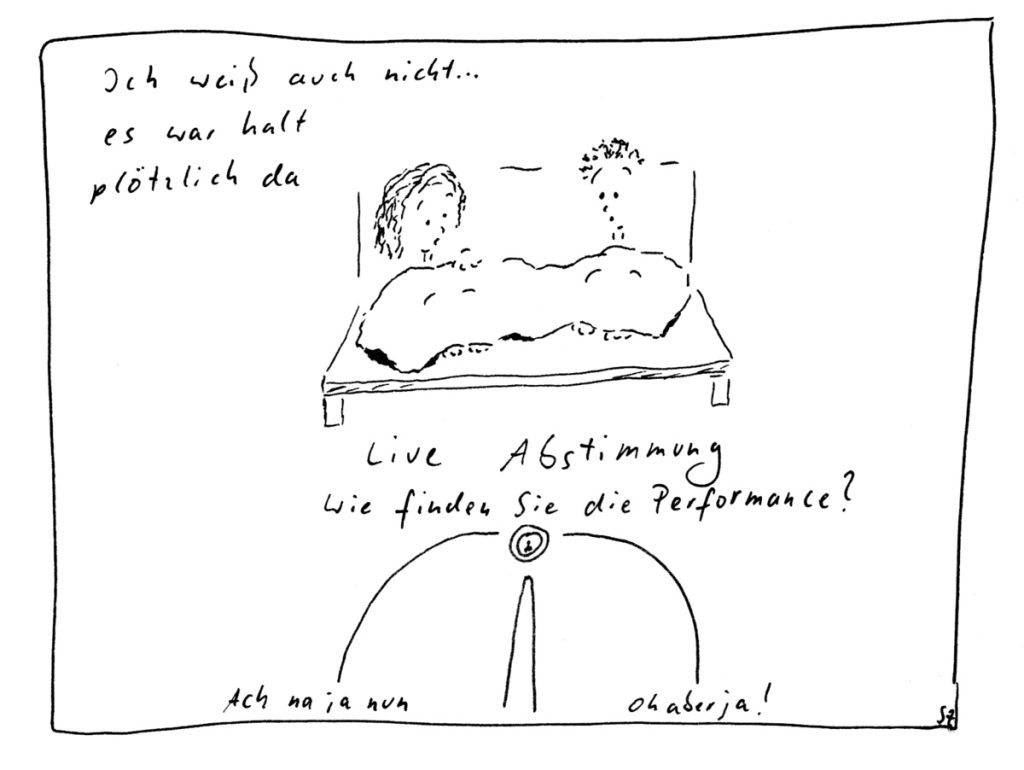 Ich weiß auch nicht...
es war halt
plötzlich da
Live Abstimmung
Wie finden Sie die Performance?
i
Ach na ja nun
ohaberja!
SZ